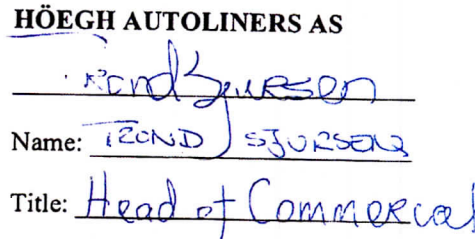 HÖEGH AUTOLINERS AS
Trond Sjursen
Name: TROND SJURSEN
Title: Head of Commercial